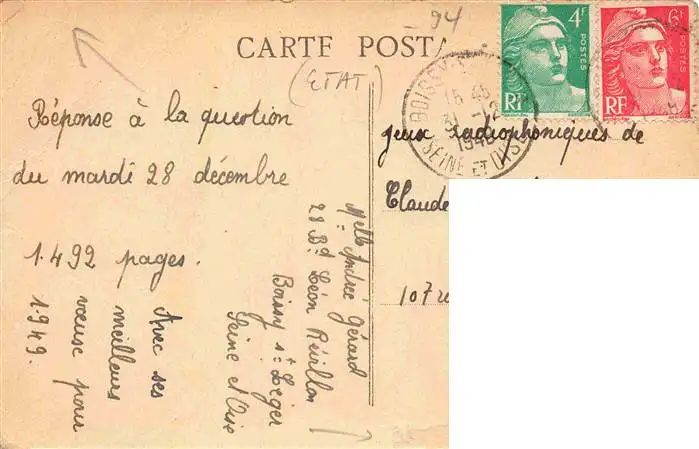 - 94
CARTE POSTA
(ETAT)
4F
POSTES
RF
6F
POSTES
RF
BOISSY
15 45
31 -12
1948
SEINE ET OISE
Réponse à la question
du mardi 28 décembre
1.492 pages.
Avec ses
meilleurs
vœuse pour
1.949.
Melle Andrée Gérard
28 Bd Léon Révillon
Boissy st Léger
Seine et Oise
jeux radiophoniques de
Claude
107 r